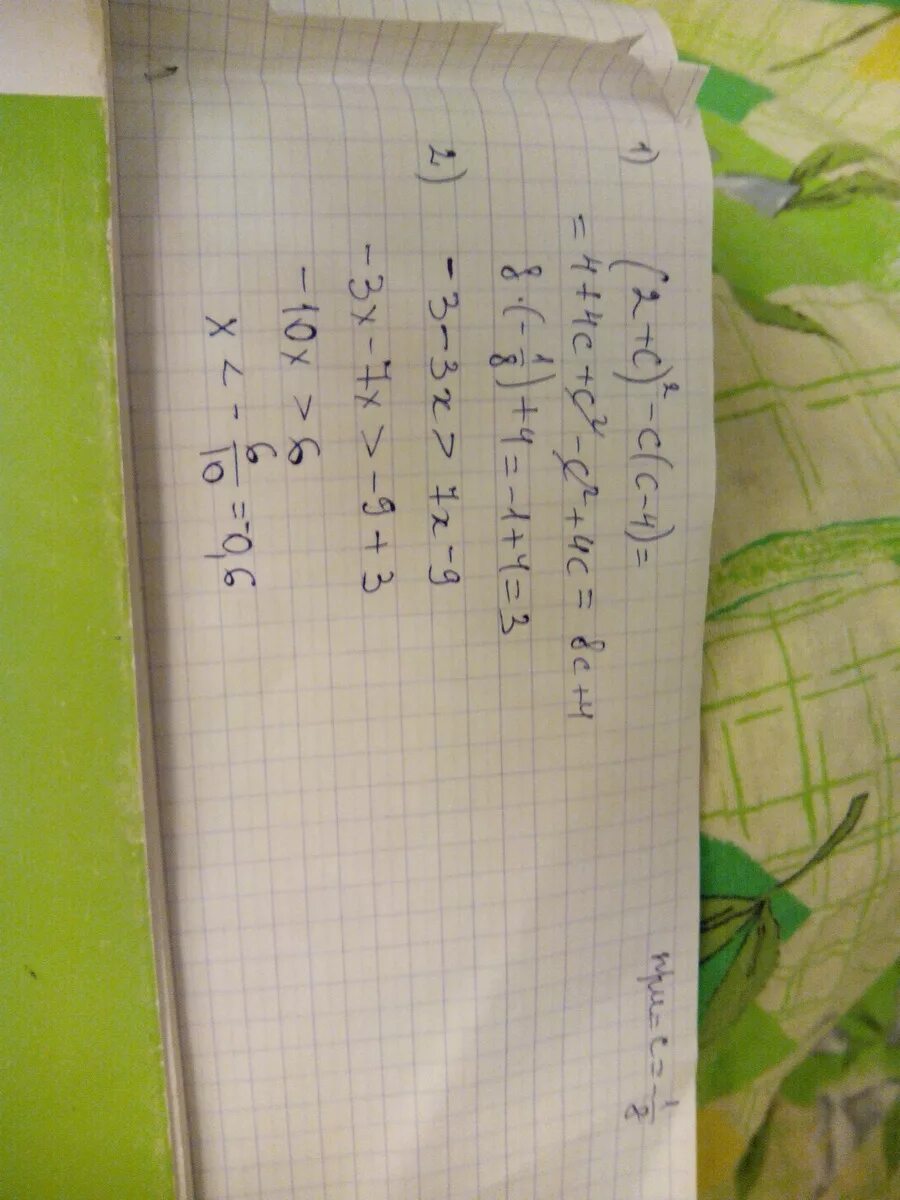 1) (2+c)² - c(c-4) = при c = -1/8
= 4+4c+c²-c²+4c = 8c+4
8·(-1/8)+4=-1+4=3
2) -3-3x>7x-9
-3x-7x>-9+3
-10x>6
x<-6/10=-0,6